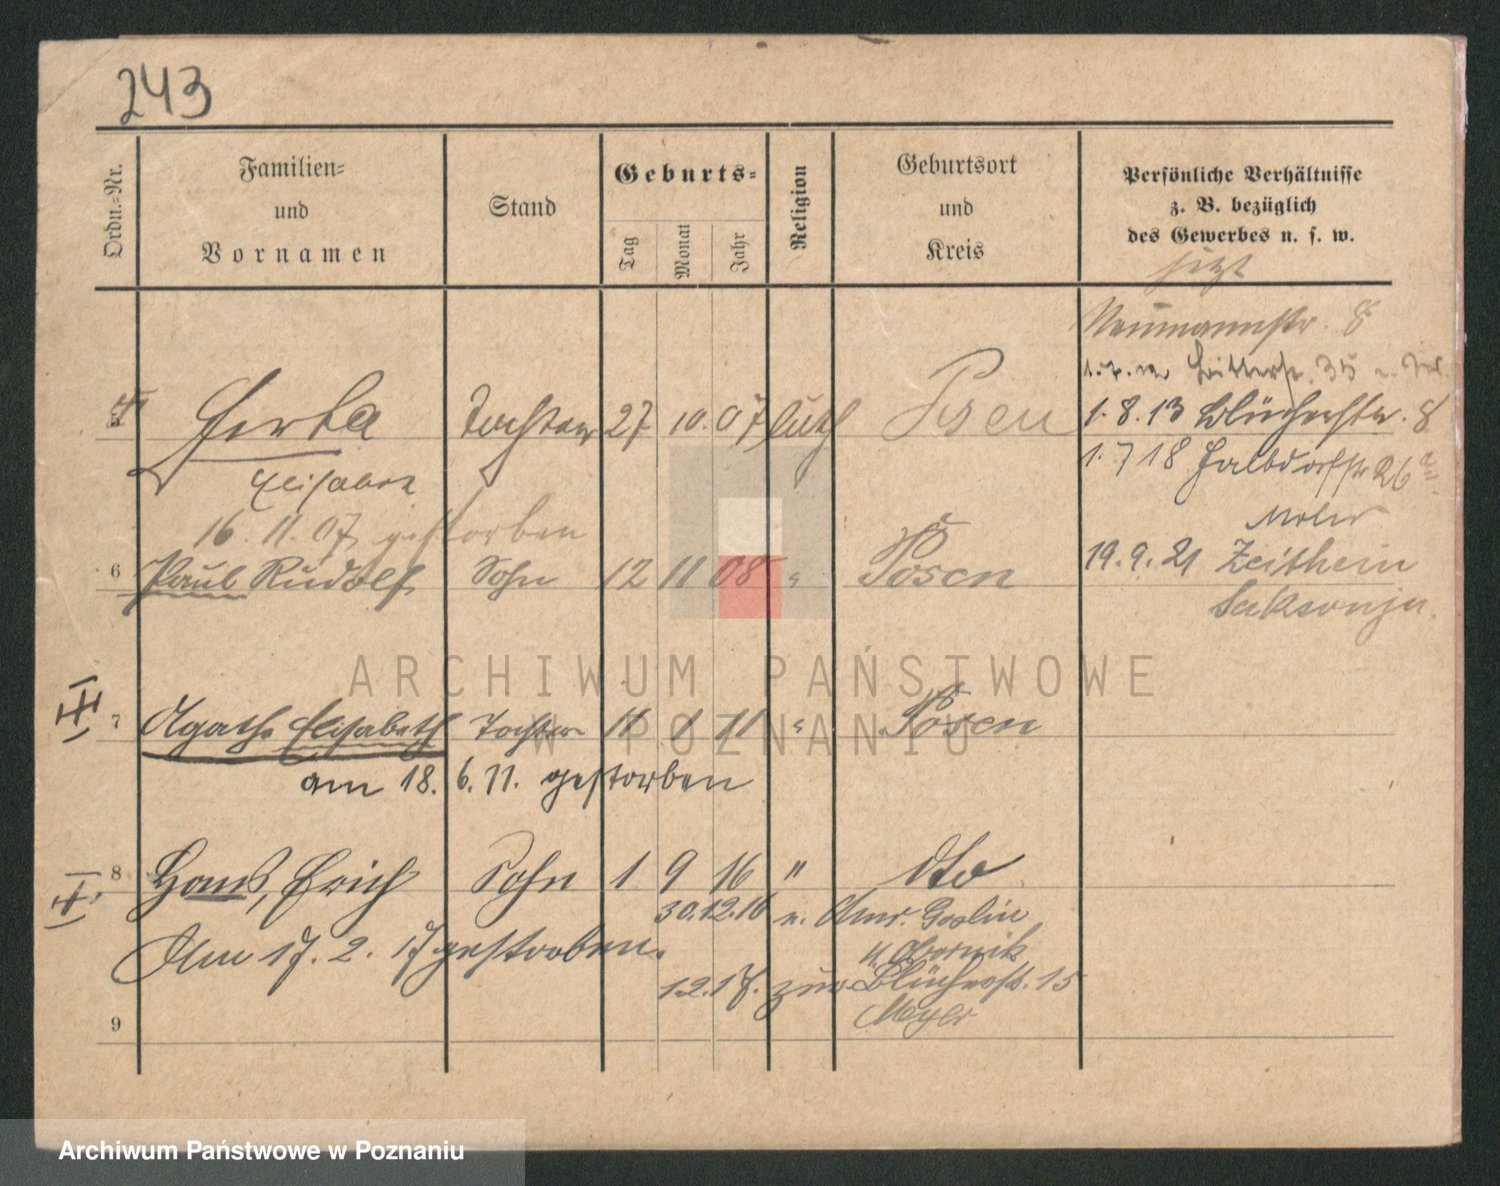 243
Ordn.-Nr.
Familien-
und
Vornamen
Stand
Geburts-
Tag
Monat
Jahr
Religion
Geburtsort
und
Kreis
Persönliche Verhältnisse
z. B. bezüglich
des Gewerbes u. s. w.
jetzt
Neumannstr. 8
35
1.8.13 Blücherstr. 8
1.7 18 26
Herta Tochter 27 10. 07 luth Posen
Elisabeth
16 11. 07 gestorben
6 Paul Rudolf Sohn 12 11 08 " Posen
19.9.21 Zeithein
Saksonja
7 Agathe Elisabeth Tochter 11 1 11 " Posen
am 18. 6. 11. gestorben
8 Hans, Erich Sohn 1 9 16 " dto
30.12.16 n. Amr. Goslin
Obornik
Am 17. 2. 17 gestorben.
1.2.17. zur Blücherstr. 15
Meyer
9
ARCHIWUM PAŃSTWOWE
W POZNANIU
Archiwum Państwowe w Poznaniu